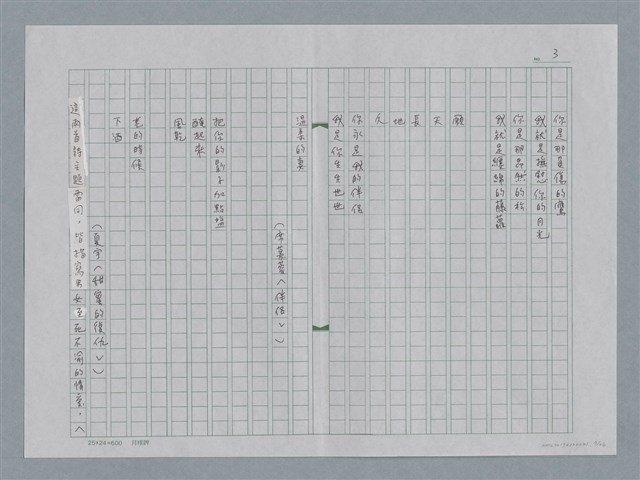 NO. 3
你是那負傷的鷹
我就是撫慰你的月光
你是那昂然的松
我就是纏綿的藤蘿
願
天
長
地
久
你永是我的伴侶
我是你生生世世
溫柔的妻
（席慕蓉〈伴侶〉）
把你的影子加點鹽
醃起來
風乾
老的時候
下酒
（夏宇〈甜蜜的復仇〉）
這兩首詩主題雷同，皆描寫男女至死不渝的情愛，〈
25×24=600